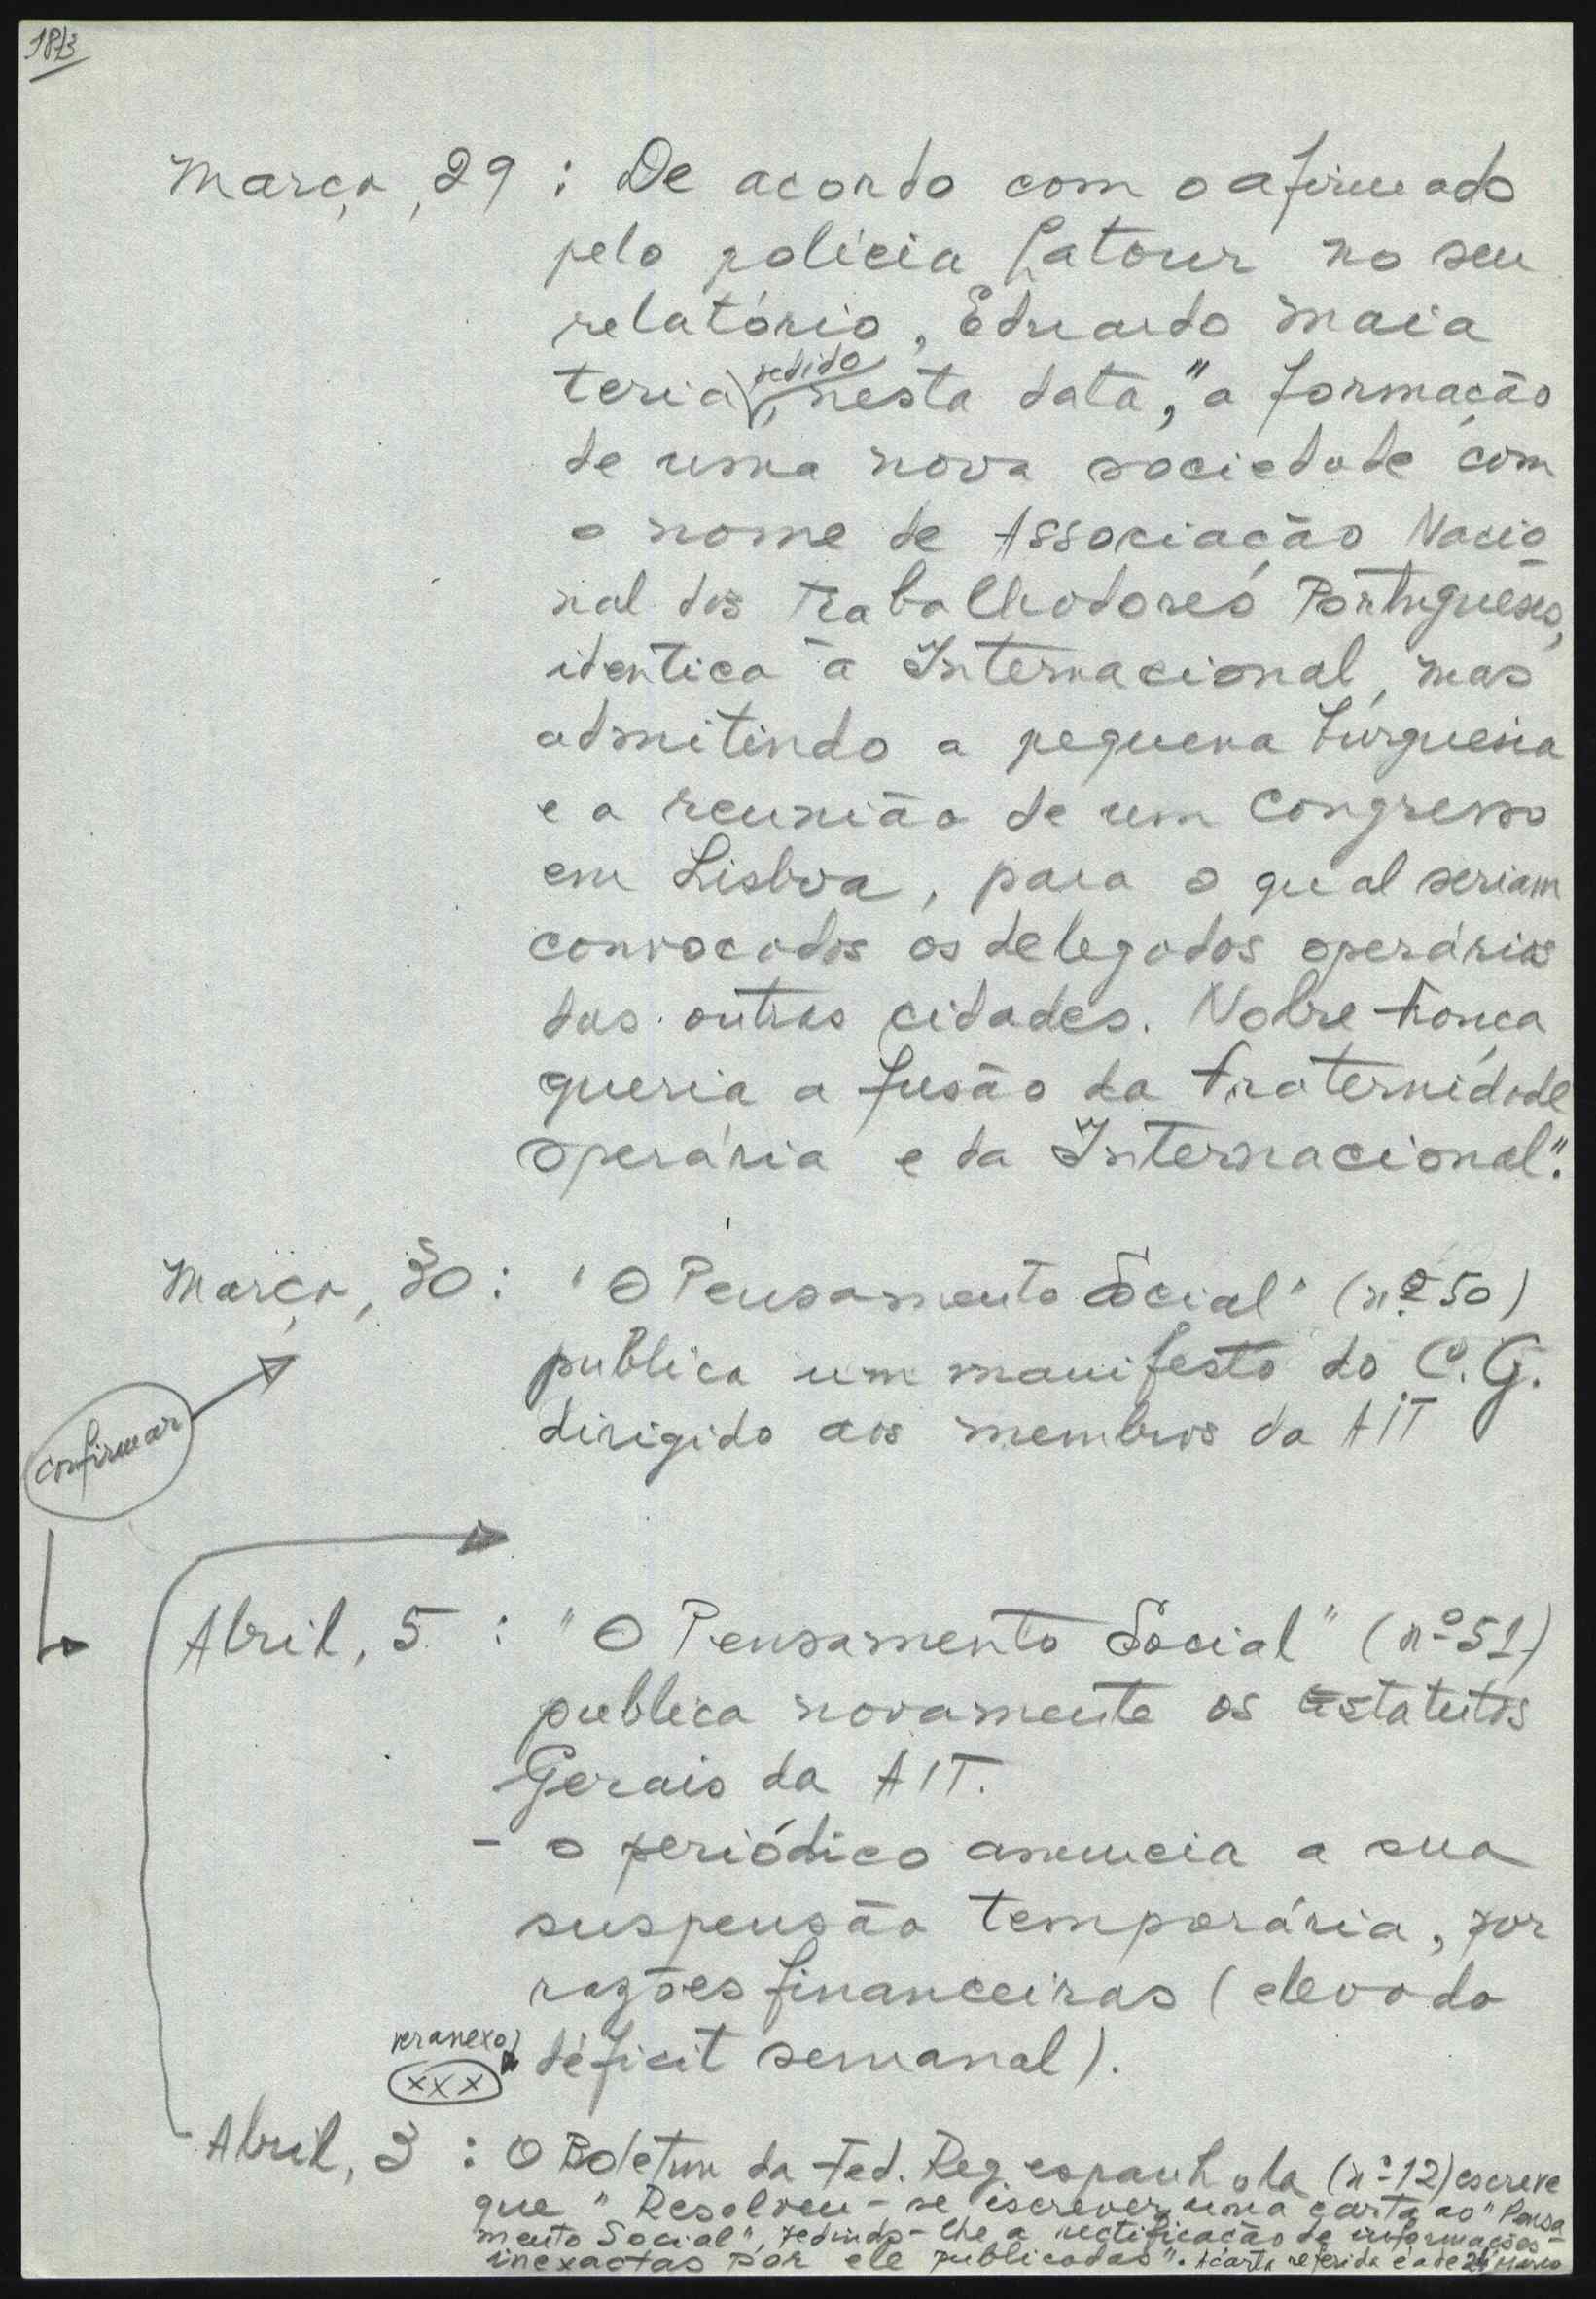 1873
Março, 29 : De acordo com o afirmado
pelo polícia Latour no seu
relatório, Eduardo Maia
teria pedido, nesta data, "a formação
de uma nova sociedade com
o nome de Associação Nacio
nal dos Trabalhadores Portugueses,
identica à Internacional, mas
admitindo a pequena burguesia
e a reunião de um congresso
em Lisboa, para o qual seriam
convocados os delegados operários
das outras cidades. Nobre França
queria a fusão da Fraternidade
Operária e da Internacional".
Março, 30 : "O Pensamento Social" (nº 50)
publica um manifesto do C. G.
dirigido aos membros da AIT
confirmar
Abril, 5 : "O Pensamento Social" (nº 51)
publica novamente os Estatutos
Gerais da AIT.
- o periódico anuncia a sua
suspensão temporária, por
razões financeiras (elevado
ver anexo
xxx
déficit semanal).
Abril, 3 : O Boletim da Fed. Reg. espanhola (nº 12) escreve
que "Resolveu-se escrever uma carta ao "Pensa
mento Social", pedindo-lhe a rectificação de informações
inexactas por ele publicadas". A carta referida é a de Março